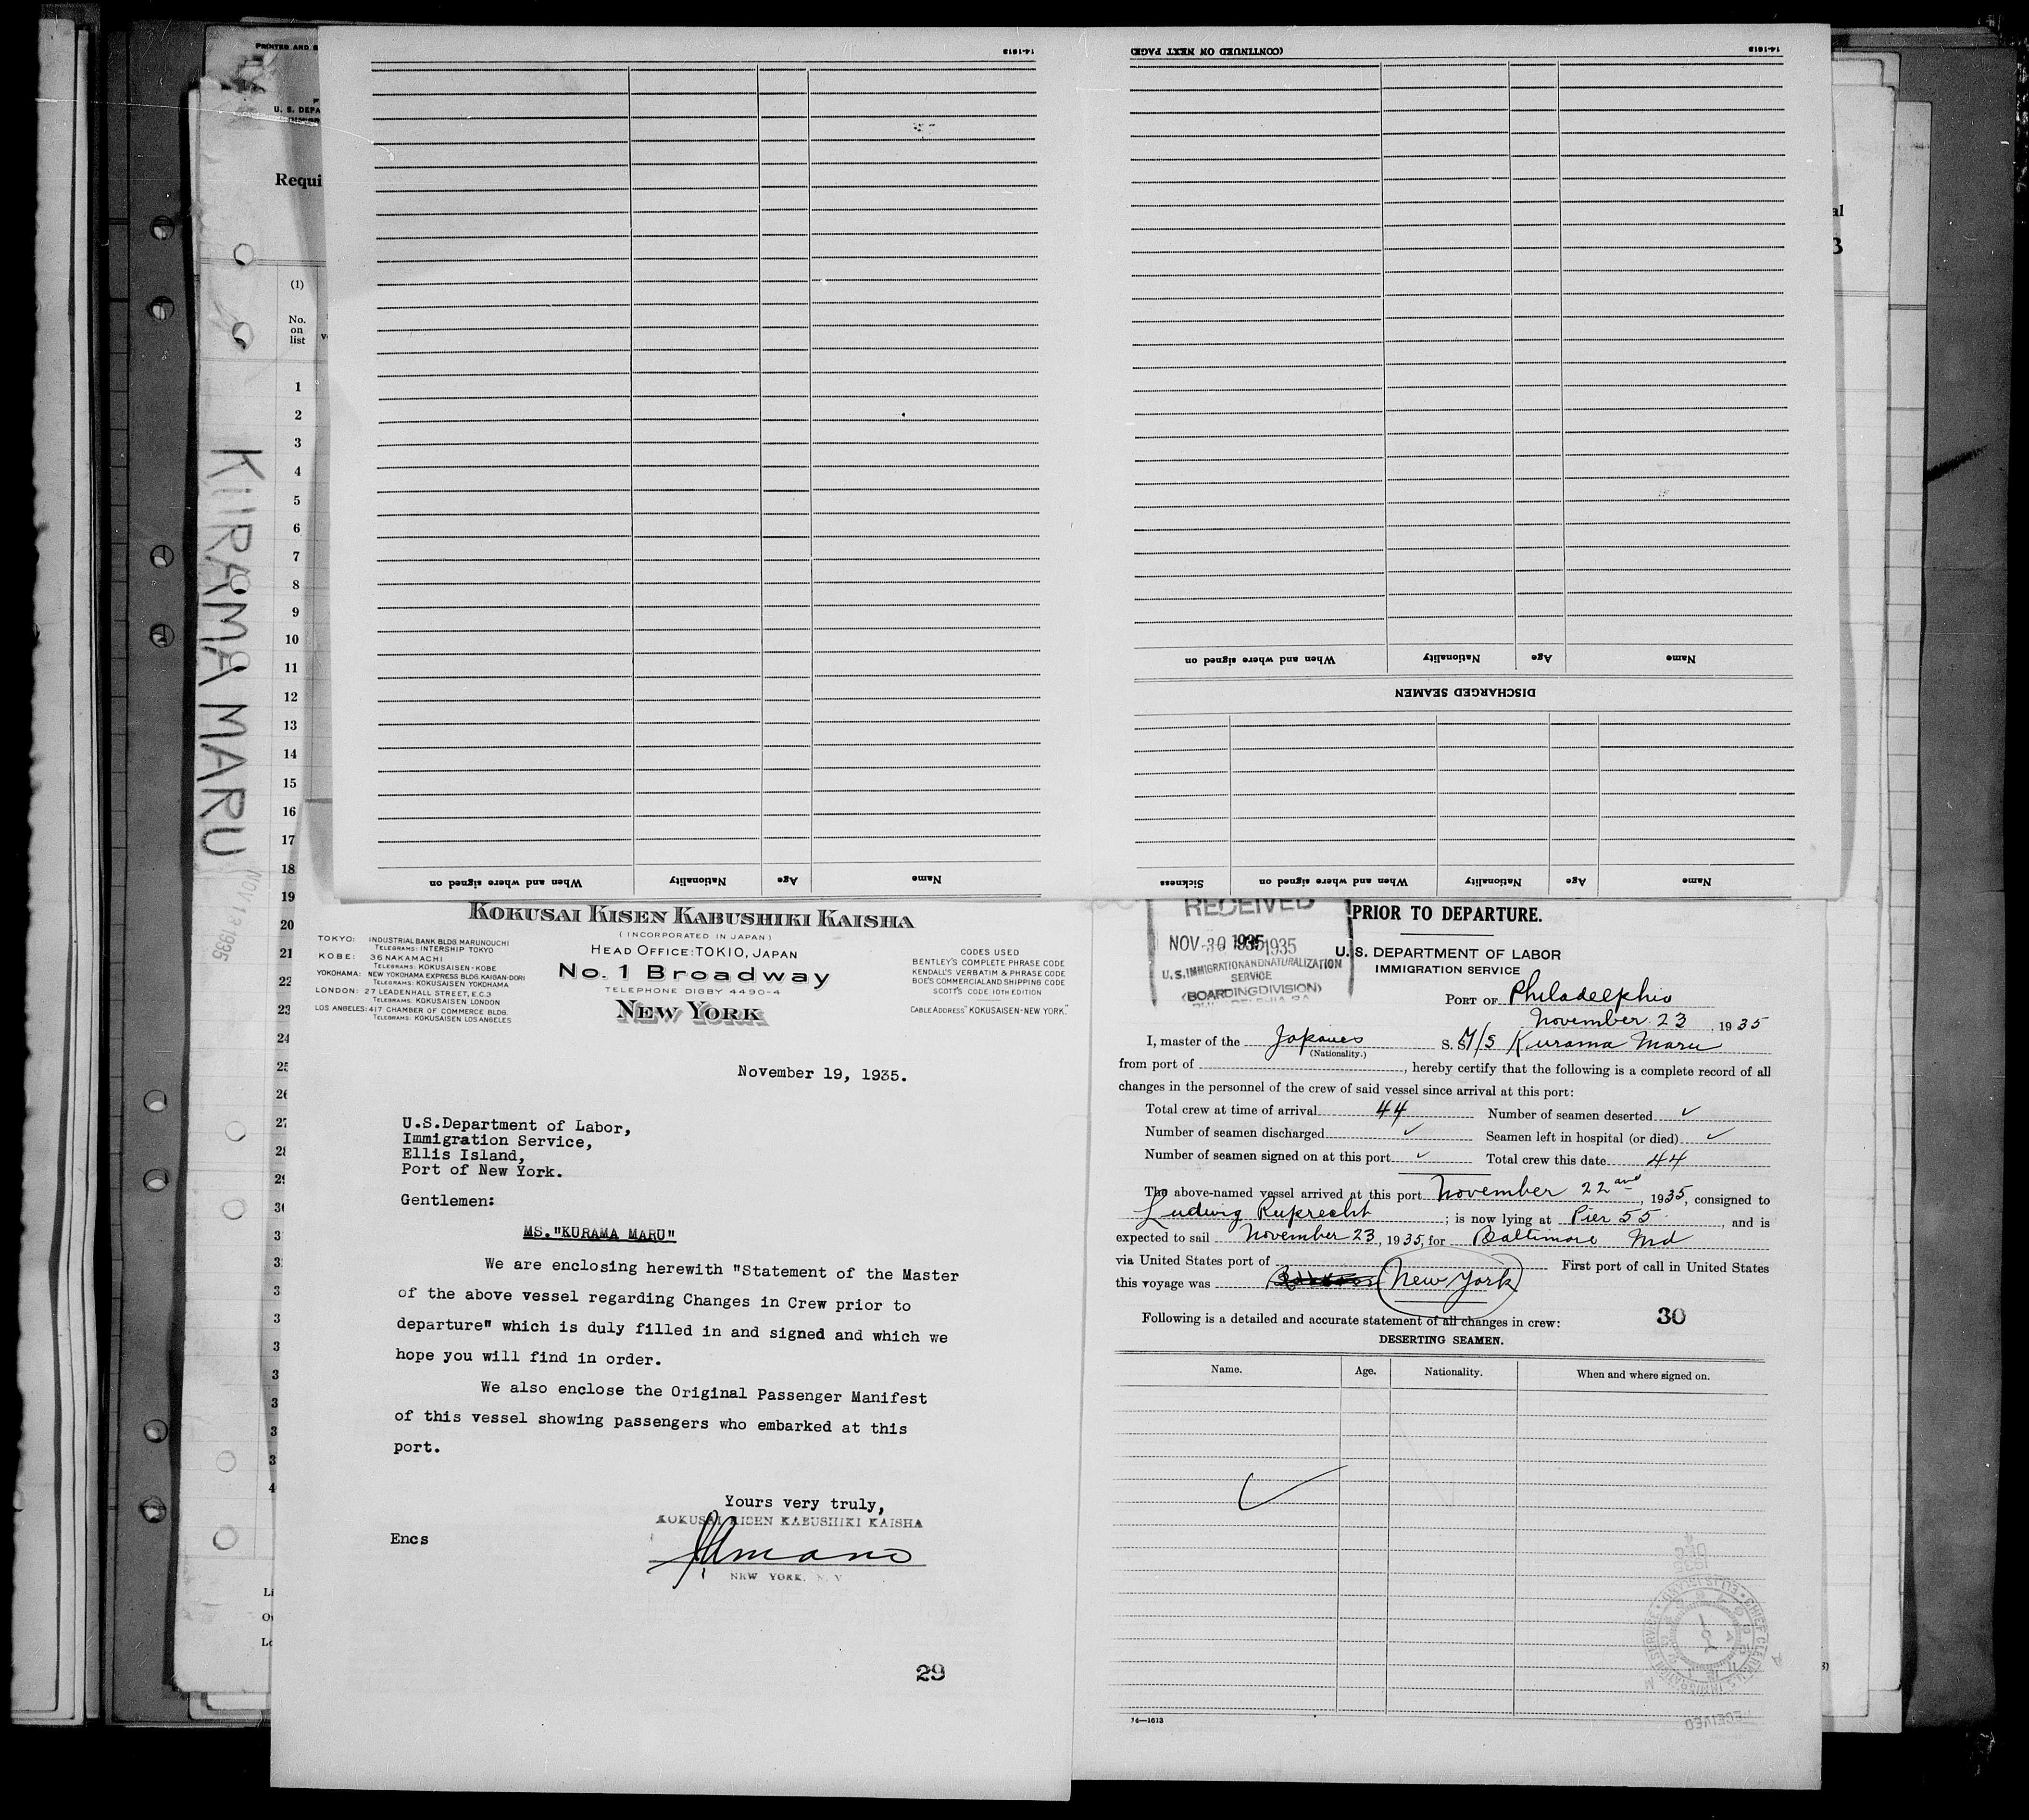 PRINTED AND
U. S. DEPA
Requi
(1)
No.
on
list
1
2
3
4
5
6
7
8
9
10
11
12
13
14
15
16
17
18
19
20
21
22
23
24
KURAMA MARU
NOV 13 1935
14-1613
When and where signed on
Nationality
Age
Name
(CONTINUED ON NEXT PAGE)
14-1613
When and where signed on
Nationality
Age
Name
DISCHARGED SEAMEN
Sickness
When and where signed on
Nationality
Age
Name
KOKUSAI KISEN KABUSHIKI KAISHA
(INCORPORATED IN JAPAN)
HEAD OFFICE: TOKIO, JAPAN
No. 1 Broadway
TELEPHONE DIGBY 4490-4
NEW YORK
TOKYO: INDUSTRIAL BANK BLDG. MARUNOUCHI
TELEGRAMS: INTERSHIP TOKYO
KOBE: 36 NAKAMACHI
TELEGRAMS: KOKUSAISEN-KOBE
YOKOHAMA: NEW YOKOHAMA EXPRESS BLDG. KAIGAN-DORI
TELEGRAMS: KOKUSAISEN YOKOHAMA
LONDON: 27 LEADENHALL STREET, E.C.3
TELEGRAMS: KOKUSAISEN LONDON
LOS ANGELES: 417 CHAMBER OF COMMERCE BLDG.
TELEGRAMS: KOKUSAISEN LOS ANGELES
CODES USED
BENTLEY'S COMPLETE PHRASE CODE
KENDALL'S VERBATIM & PHRASE CODE
BOE'S COMMERCIAL AND SHIPPING CODE
SCOTT'S CODE 10TH EDITION
CABLE ADDRESS "KOKUSAISEN-NEW YORK."
November 19, 1935.
U.S.Department of Labor,
Immigration Service,
Ellis Island,
Port of New York.
Gentlemen:
MS."KURAMA MARU"
We are enclosing herewith "Statement of the Master
of the above vessel regarding Changes in Crew prior to
departure" which is duly filled in and signed and which we
hope you will find in order.
We also enclose the Original Passenger Manifest
of this vessel showing passengers who embarked at this
port.
Yours very truly,
KOKUSAI KISEN KABUSHIKI KAISHA
Encs
NEW YORK, N. Y.
29
RECEIVED
NOV 30 1935 1935
U.S. IMMIGRATION AND NATURALIZATION
SERVICE
(BOARDING DIVISION)
PHILADELPHIA PA.
PRIOR TO DEPARTURE.
U.S. DEPARTMENT OF LABOR
IMMIGRATION SERVICE
PORT OF Philadelphia
November 23, 1935
I, master of the Japanes S. S. M/S Kurama Maru
(Nationality.)
from port of , hereby certify that the following is a complete record of all
changes in the personnel of the crew of said vessel since arrival at this port:
Total crew at time of arrival 44 Number of seamen deserted ✓
Number of seamen discharged ✓ Seamen left in hospital (or died) ✓
Number of seamen signed on at this port ✓ Total crew this date 44
The above-named vessel arrived at this port November 22nd, 1935, consigned to
Ludwig Ruprecht; is now lying at Pier 55, and is
expected to sail November 23, 1935, for Baltimore Md
via United States port of First port of call in United States
this voyage was New York
Following is a detailed and accurate statement of all changes in crew:
30
DESERTING SEAMEN.
Name. Age. Nationality. When and where signed on.
✓
14—1613
RECEIVED